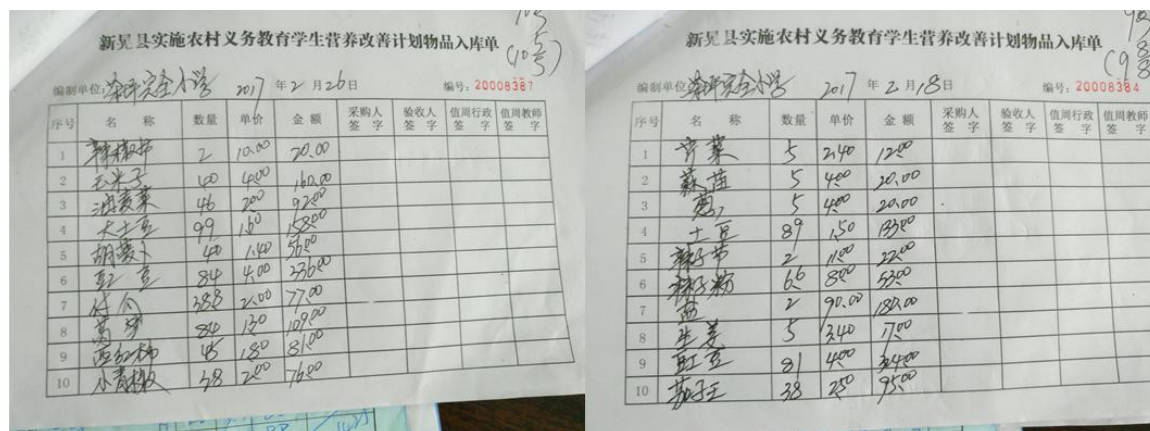 10号
(10号)
新晃县实施农村义务教育学生营养改善计划物品入库单
编制单位: 完全小学 2017 年 2 月 26 日 编号: 20008387
序号 名 称 数量 单价 金 额 采购人签 字 验收人签 字 值周行政签 字 值周教师签 字
1 2 10.00 20.00
2 玉米子 40 4.00 160.00
3 油麦菜 46 2.00 92.00
4 大土豆 99 1.60 158.00
5 胡萝卜 40 1.40 56.00
6 豇豆 84 4.00 336.00
7 2.00 77.00
8 84 1.30 109.00
9 西红柿 45 1.80 81.00
10 小青椒 38 2.00 76.00
新晃县实施农村义务教育学生营养改善计划物品入库单
编制单位: 完全小学 2017 年 2 月 18 日 编号: 20008384
序号 名 称 数量 单价 金 额 采购人签 字 验收人签 字 值周行政签 字 值周教师签 字
1 芹菜 5 2.40 12.00
2 蒜苗 5 4.00 20.00
3 葱 5 4.00 20.00
4 土豆 89 1.50 133.00
5 2 11.00 22.00
6 辣子粉 6.6 8.00 53.00
7 2 90.00 180.00
8 生姜 5 3.40 17.00
9 豇豆 81 4.00 324.00
10 茄子王 38 2.50 95.00